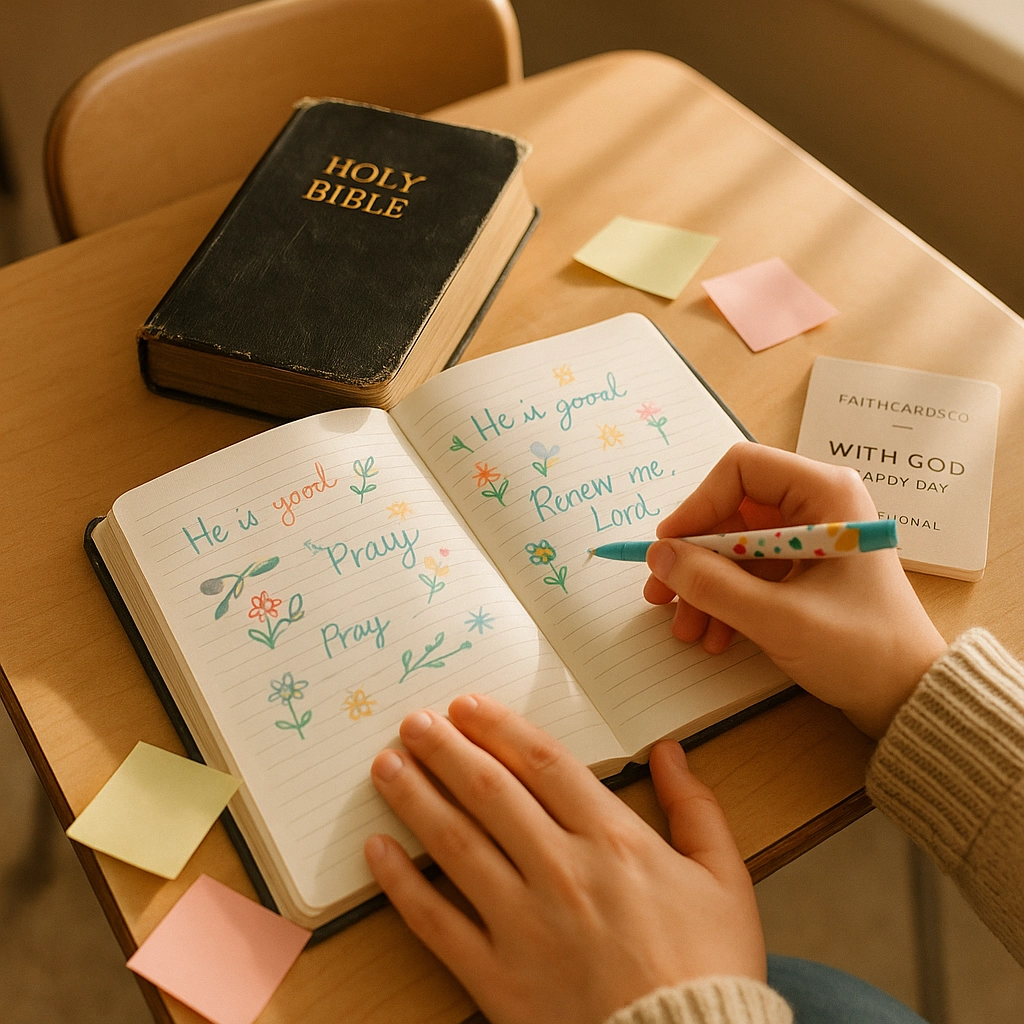 HOLY
BIBLE
He is yood
Prauy
Pray
He is gooal
Renew me,
Lord
FAITHCARDSCO
WITH GOD
DAY